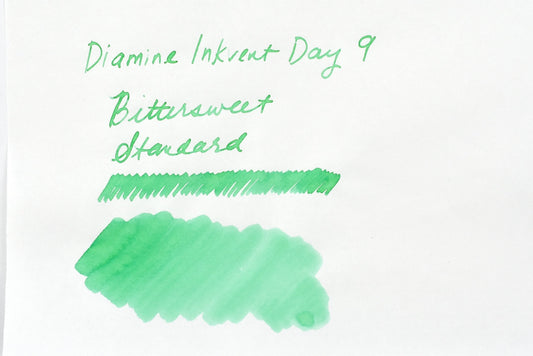 Diamine Inkvent Day 9
Bittersweet
Standard